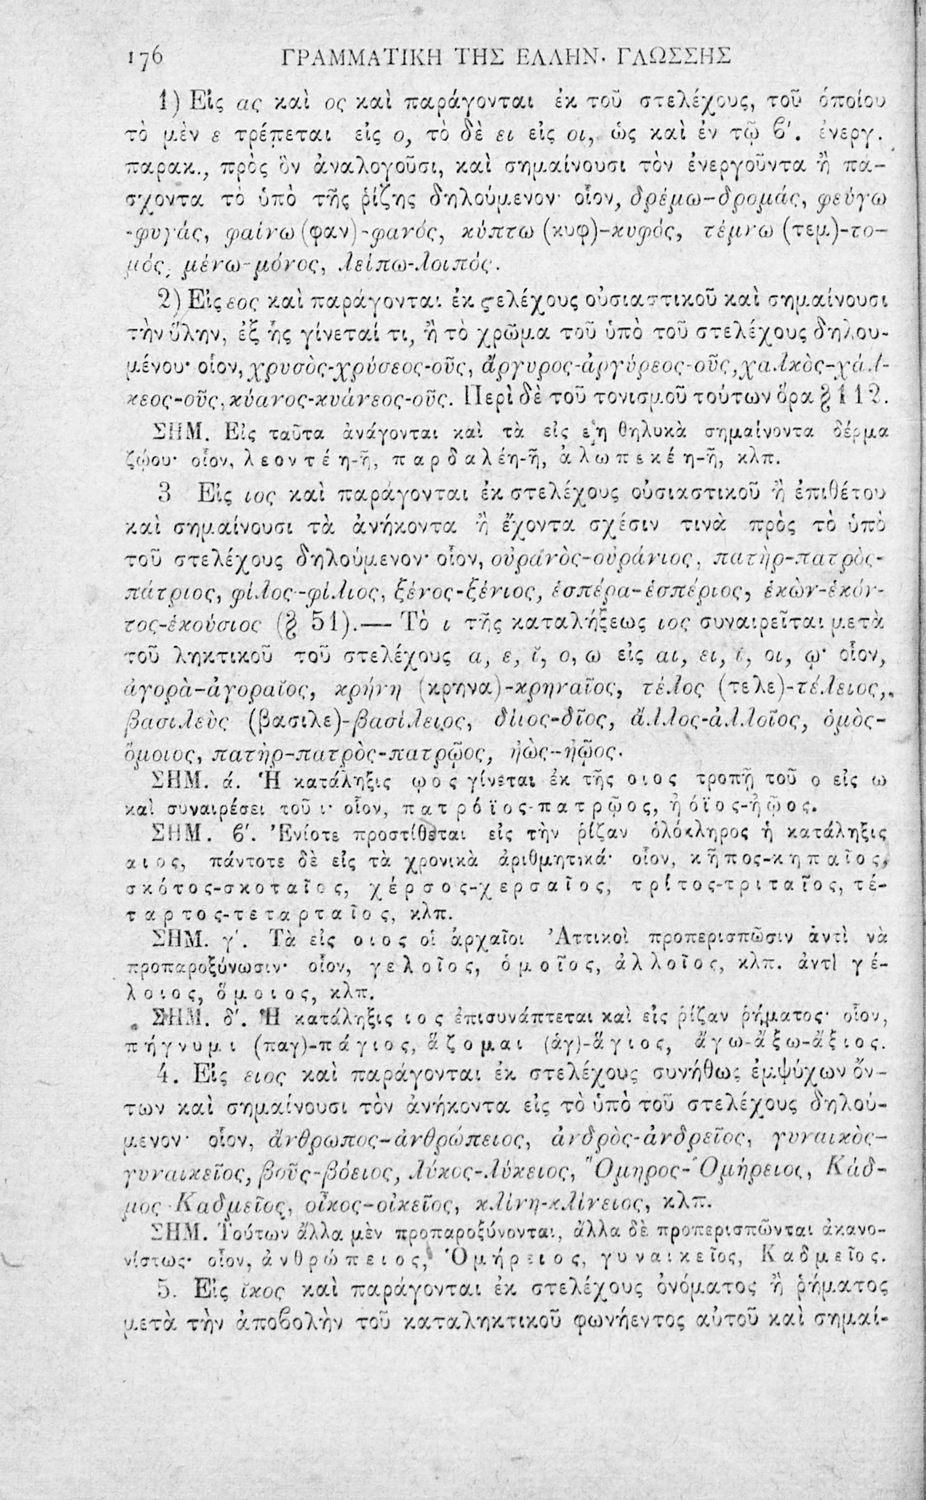 176 ΓΡΑΜΜΑΤΙΚΗ ΤΗΣ ΕΛΛΗΝ. ΓΛΩΣΣΗΣ
1) Εἰς ας καὶ ος καὶ παράγονται ἐκ τοῦ στελέχους, τοῦ ὁποίου
τὸ μὲν ε τρέπεται εἰς ο, τὸ δὲ ει εἰς οι, ὡς καὶ ἐν τῷ β'. ἐνεργ.
παρακ., πρὸς ὃν ἀναλογοῦσι, καὶ σημαίνουσι τὸν ἐνεργοῦντα ἢ πά-
σχοντα τὸ ὑπὸ τῆς ῥίζης δηλούμενον· οἷον, δρέμω-δρομάς, φεύγω
-φυγάς, φαίνω (φαν)-φανός, κύπτω (κυφ)-κυφός, τέμνω (τεμ)-το-
μός, μένω-μόνος, λείπω-λοιπός.
2) Εἰς εος καὶ παράγονται ἐκ στελέχους οὐσιαστικοῦ καὶ σημαίνουσι
τὴν ὕλην, ἐξ ἧς γίνεταί τι, ἢ τὸ χρῶμα τοῦ ὑπὸ τοῦ στελέχους δηλου-
μένου· οἷον, χρυσὸς-χρύσεος-οῦς, ἄργυρος-ἀργύρεος-οῦς, χαλκὸς-χάλ-
κεος-οῦς, κύανος-κυάνεος-οῦς. Περὶ δὲ τοῦ τονισμοῦ τούτων ὅρα § 112.
ΣΗΜ. Εἰς ταῦτα ἀνάγονται καὶ τὰ εἰς εη θηλυκὰ σημαίνοντα δέρμα
ζώου· οἷον, λεοντέη-ῆ, παρδαλέη-ῆ, ἀλωπεκέη-ῆ, κλπ.
3 Εἰς ιος καὶ παράγονται ἐκ στελέχους οὐσιαστικοῦ ἢ ἐπιθέτου
καὶ σημαίνουσι τὰ ἀνήκοντα ἢ ἔχοντα σχέσιν τινὰ πρὸς τὸ ὑπὸ
τοῦ στελέχους δηλούμενον· οἷον, οὐρανὸς-οὐράνιος, πατὴρ-πατρὸς-
πάτριος, φίλος-φίλιος, ξένος-ξένιος, ἑσπέρα-ἑσπέριος, ἑκὼν-ἑκόν-
τος-ἑκούσιος (§ 51).— Τὸ ι τῆς καταλήξεως ιος συναιρεῖται μετὰ
τοῦ ληκτικοῦ τοῦ στελέχους α, ε, ῐ, ο, ω εἰς αι, ει, ῑ, οι, ῳ· οἷον,
ἀγορὰ-ἀγοραῖος, κρήνη (κρηνα)-κρηναῖος, τέλος (τελε)-τέλειος,
βασιλεὺς (βασιλε)-βασίλειος, δίιος-δῖος, ἄλλος-ἀλλοῖος, ὁμὸς-
ὅμοιος, πατὴρ-πατρὸς-πατρῷος, ἠὼς-ἠῷος.
ΣΗΜ. ά. Ἡ κατάληξις ῳος γίνεται ἐκ τῆς οιος τροπῇ τοῦ ο εἰς ω
καὶ συναιρέσει τοῦ ι· οἷον, πατρόϊος-πατρῷος, ἠόϊος-ἠῷος.
ΣΗΜ. β'. Ἐνίοτε προστίθεται εἰς τὴν ῥίζαν ὁλόκληρος ἡ κατάληξις
αιος, πάντοτε δὲ εἰς τὰ χρονικὰ ἀριθμητικά· οἷον, κῆπος-κηπαῖος,
σκότος-σκοταῖος, χέρσος-χερσαῖος, τρίτος-τριταῖος, τέ-
ταρτος-τεταρταῖος, κλπ.
ΣΗΜ. γ'. Τὰ εἰς οιος οἱ ἀρχαῖοι Ἀττικοὶ προπερισπῶσιν ἀντὶ νὰ
προπαροξύνωσιν· οἷον, γελοῖος, ὁμοῖος, ἀλλοῖος, κλπ. ἀντὶ γέ-
λοιος, ὅμοιος, κλπ.
ΣΗΜ. δ'. Ἡ κατάληξις ιος ἐπισυνάπτεται καὶ εἰς ῥίζαν ῥήματος· οἷον,
πήγνυμι (παγ)-πάγιος, ἅζομαι (ἁγ)-ἅγιος, ἄγω-ἄξω-ἄξιος.
4. Εἰς ειος καὶ παράγονται ἐκ στελέχους συνήθως ἐμψύχων ὄν-
των καὶ σημαίνουσι τὸν ἀνήκοντα εἰς τὸ ὑπὸ τοῦ στελέχους δηλού-
μενον· οἷον, ἄνθρωπος-ἀνθρώπειος, ἀνδρὸς-ἀνδρεῖος, γυναικὸς-
γυναικεῖος, βοῦς-βόειος, λύκος-λύκειος, Ὅμηρος-Ὁμήρειος, Κάδ-
μος-Καδμεῖος, οἶκος-οἰκεῖος, κλίνη-κλίνειος, κλπ.
ΣΗΜ. Τούτων ἄλλα μὲν προπαροξύνονται, ἄλλα δὲ προπερισπῶνται ἀκανο-
νίστως· οἷον, ἀνθρώπειος, Ὁμήρειος, γυναικεῖος, Καδμεῖος.
5. Εἰς ῐκος καὶ παράγονται ἐκ στελέχους ὀνόματος ἢ ῥήματος
μετὰ τὴν ἀποβολὴν τοῦ καταληκτικοῦ φωνήεντος αὐτοῦ καὶ σημαί-